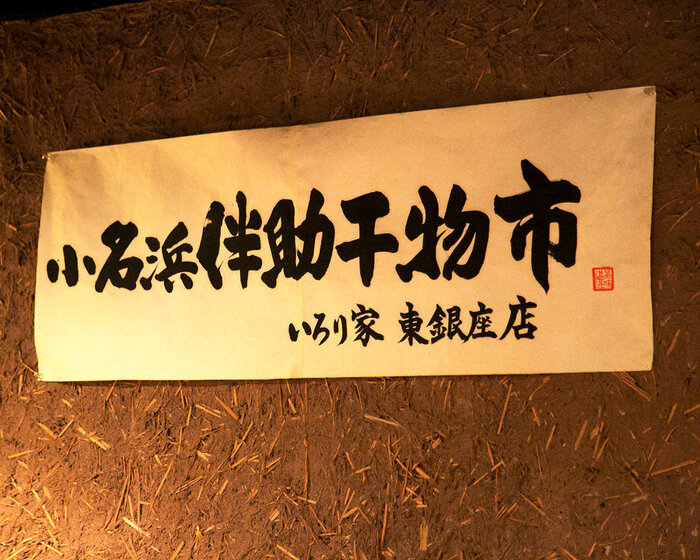 小名浜伴助干物市
いろり家 東銀座店